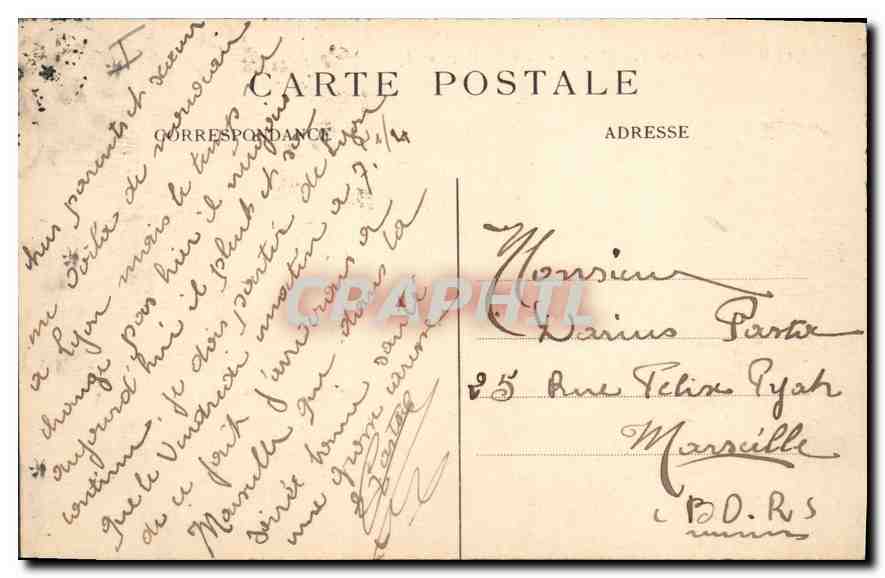 CARTE POSTALE
CORRESPONDANCE
ADRESSE
I
chers parents et sœur
me voilà de nouveau
a Lyon mais le temps
change pas hier il neigeais
aujourd'hui il pleut et sa
continue. je dois partir de Lyon
que le Vendredi matin a 7.
de ce fait j'arriverais a
Marseille que dans la
soirée bonne santé
une grosse caresse
Pasta
Monsieur
Darius Pasta
25 Rue Felix Pyat
Marseille
BD.RS
CRAPHIL